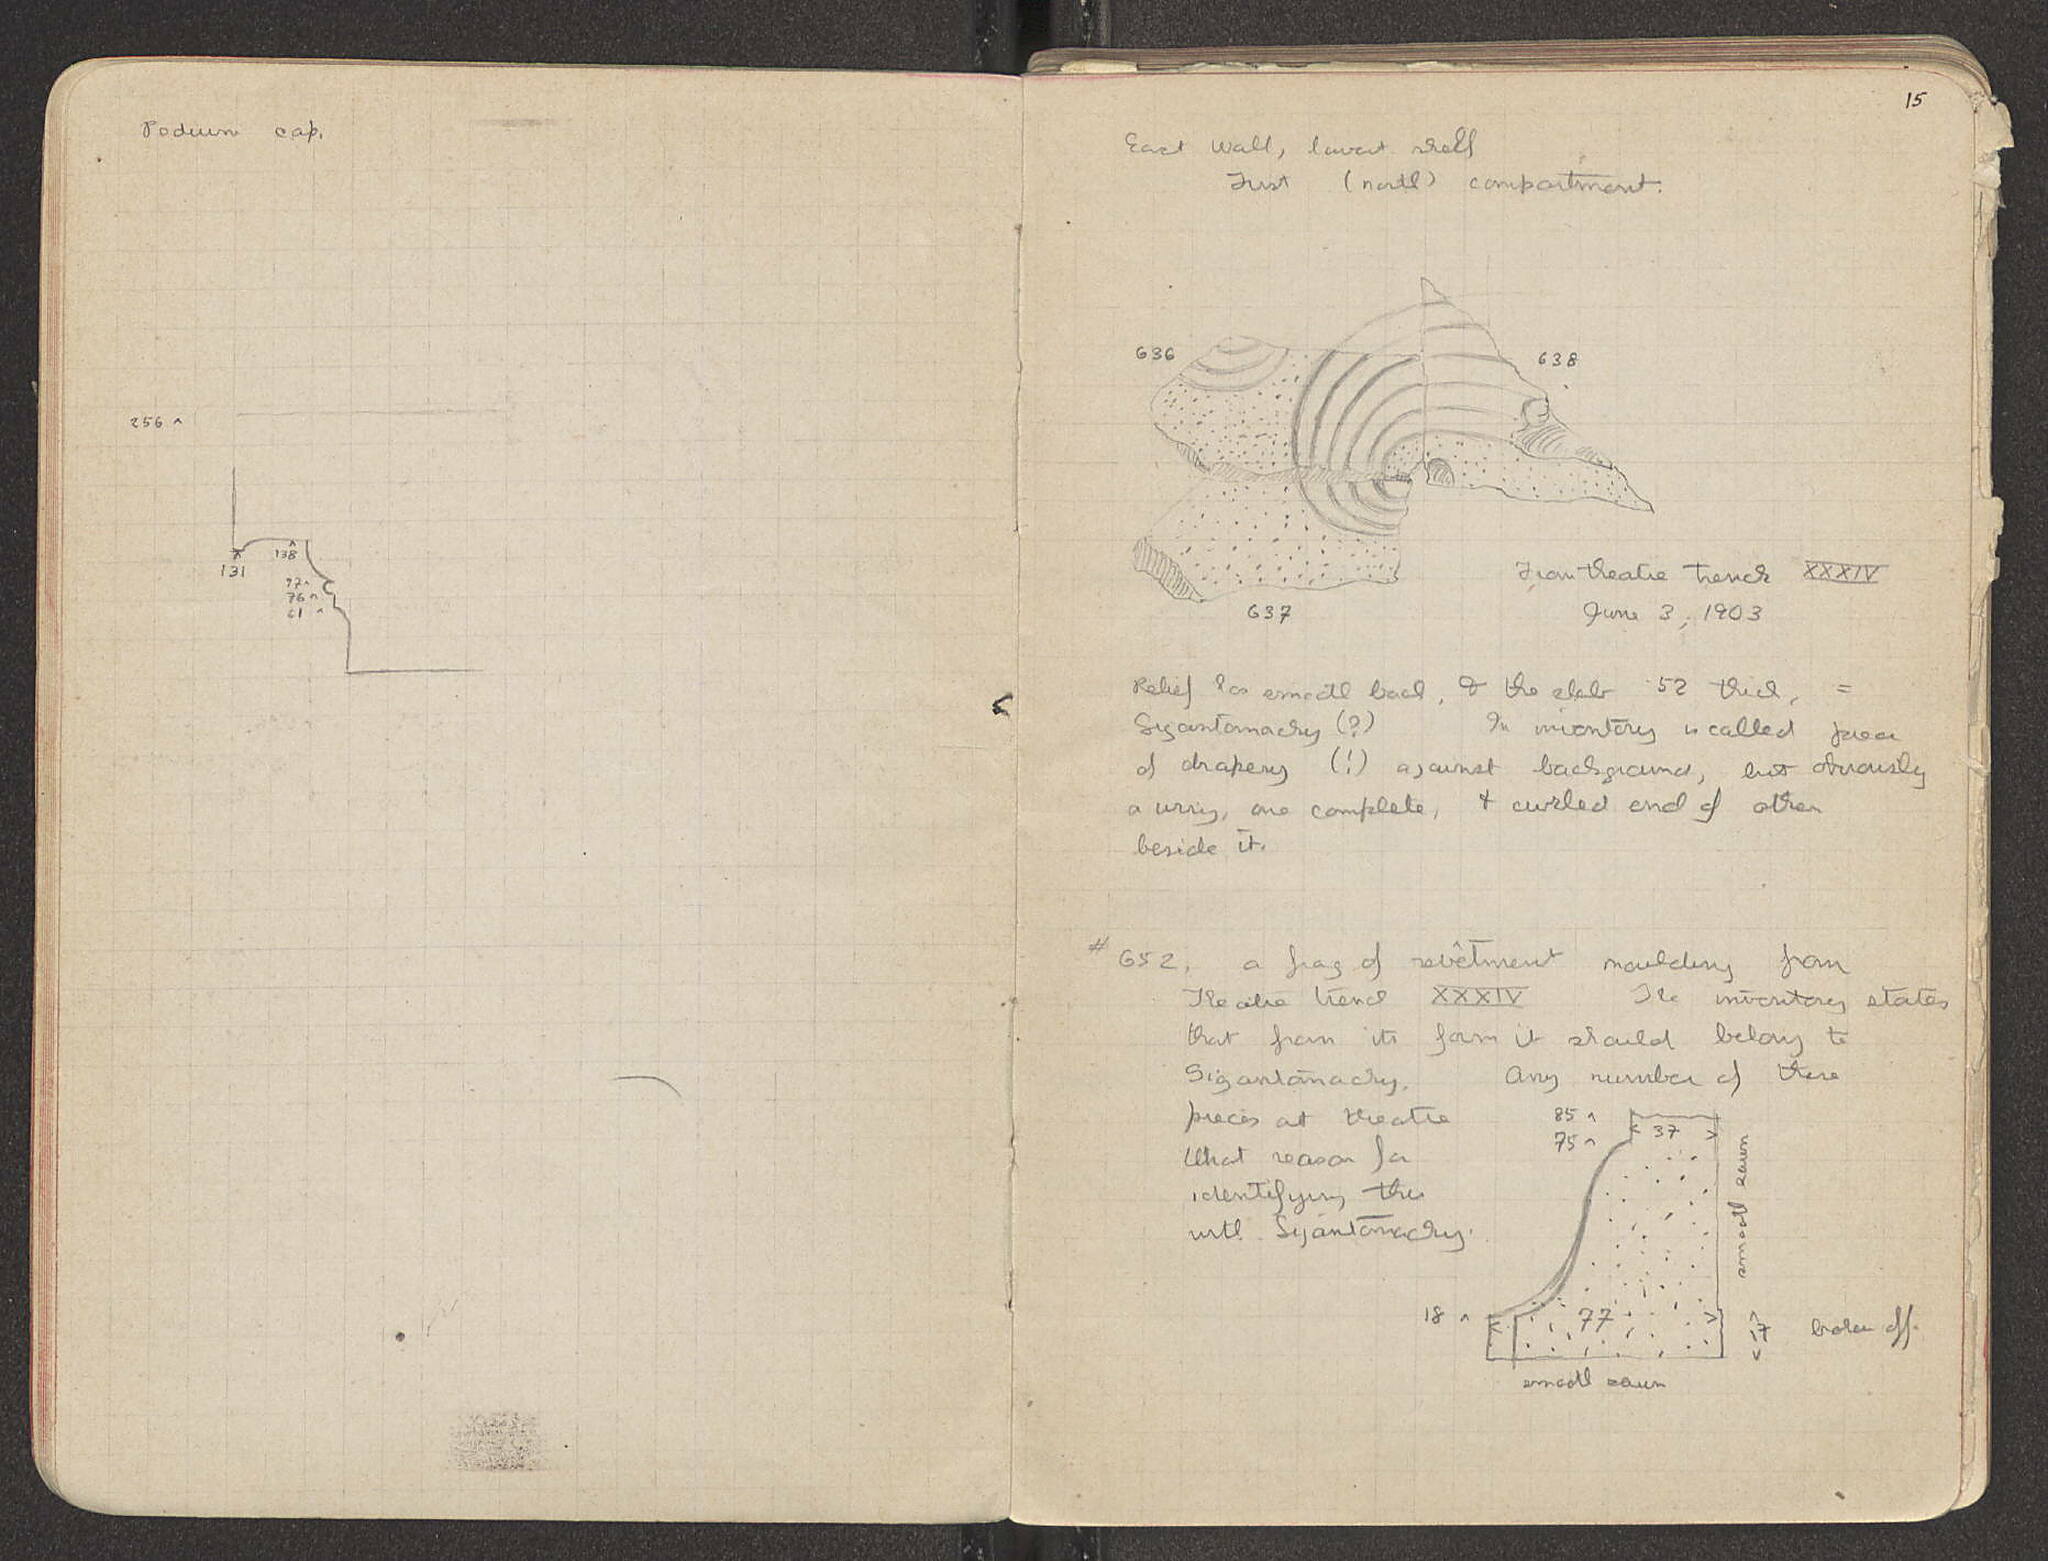 Podium cap.
256 ^
131
138
97 ^
76 ^
61 ^
15
East Wall, lowest shelf
First (north) compartment.
636
638
637
From theatre trench XXXIV
June 3, 1903
Relief has smooth back, & the slab .52 thick, =
Gigantomachy (?) In inventory is called piece
of drapery (!) against background, but obviously
a wing, one complete, & curled end of other
beside it.
# 652, a frag of revêtment moulding from
Theatre trench XXXIV The inventory states
that from its form it should belong to
Gigantomachy. Any number of these
pieces at theatre
What reason for
identifying this
with Gigantomachy.
85 ^
75 ^
37
smooth sawn
18 ^
77
17
broken off.
smooth sawn